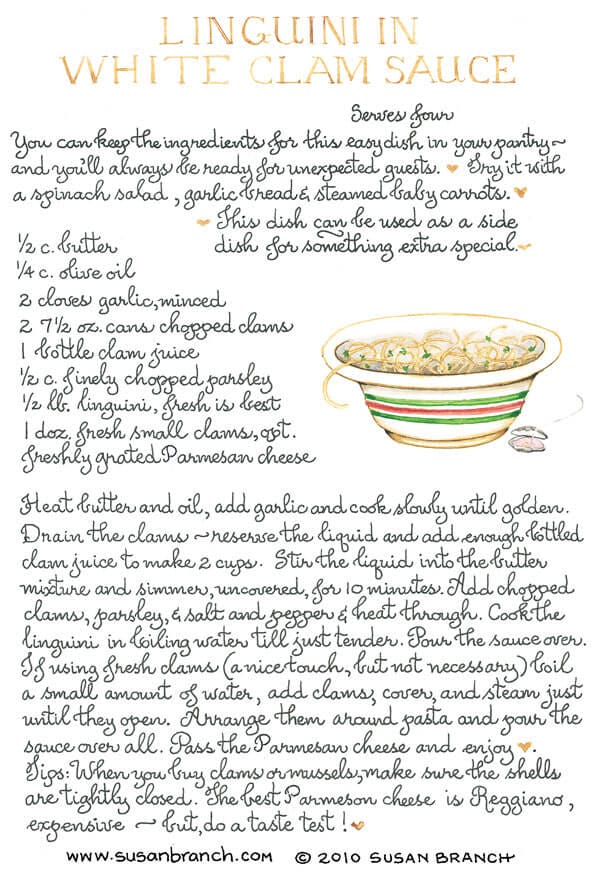 LINGUINI IN
WHITE CLAM SAUCE
Serves four
You can keep the ingredients for this easy dish in your pantry~
and you'll always be ready for unexpected guests. Try it with
a spinach salad, garlic bread & steamed baby carrots.
This dish can be used as a side
dish for something extra special.
½ c. butter
¼ c. olive oil
2 cloves garlic, minced
2 7½ oz. cans chopped clams
1 bottle clam juice
½ c. finely chopped parsley
½ lb. linguini, fresh is best
1 doz. fresh small clams, opt.
freshly grated Parmesan cheese
Heat butter and oil, add garlic and cook slowly until golden.
Drain the clams ~ reserve the liquid and add enough bottled
clam juice to make 2 cups. Stir the liquid into the butter
mixture and simmer, uncovered, for 10 minutes. Add chopped
clams, parsley, & salt and pepper & heat through. Cook the
linguini in boiling water till just tender. Pour the sauce over.
If using fresh clams (a nice touch, but not necessary) boil
a small amount of water, add clams, cover, and steam just
until they open. Arrange them around pasta and pour the
sauce over all. Pass the Parmesan cheese and enjoy.
Tips: When you buy clams or mussels, make sure the shells
are tightly closed. The best Parmeson cheese is Reggiano,
expensive ~ but, do a taste test!
www.susanbranch.com © 2010 SUSAN BRANCH